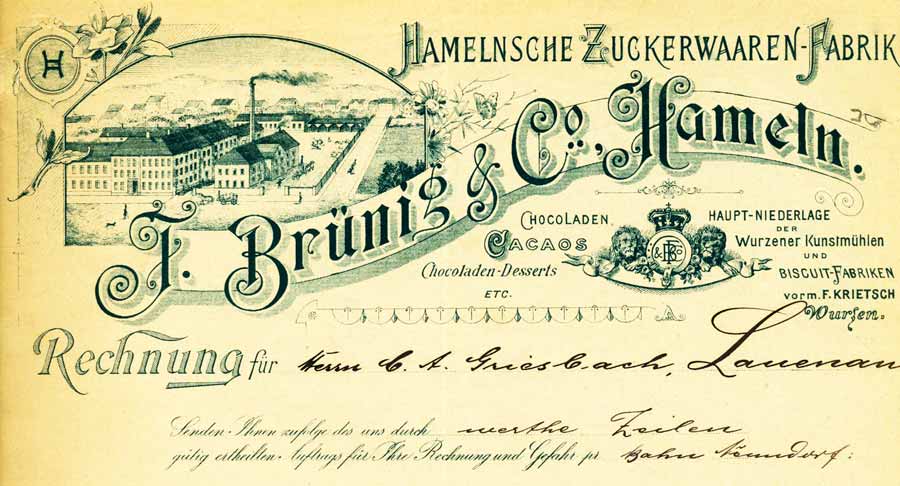 H
HAMELNSCHE ZUCKERWAAREN-FABRIK
F. Brünig & Co., Hameln.
CHOCOLADEN
CACAOS
Chocoladen-Desserts
ETC.
HAUPT-NIEDERLAGE
DER
Wurzener Kunstmühlen
UND
BISCUIT-FABRIKEN
vorm. F. KRIETSCH
Wurzen.
Rechnung für Herrn C. A. Griesbach, Lauenau
Senden Ihnen zufolge des uns durch werthe Zeilen
gütig ertheilten Auftrags für Ihre Rechnung und Gefahr pr Bahn Nenndorf: